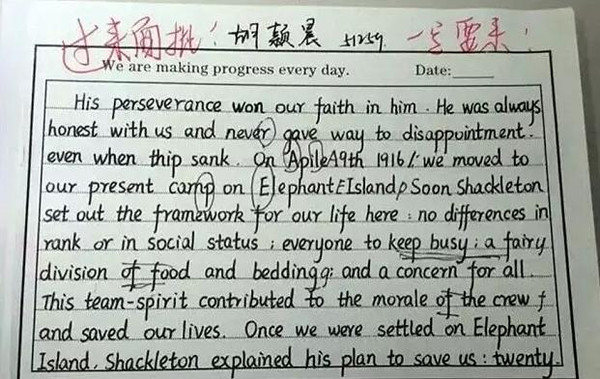 过来面批！胡颖晨 51259 一定要来！
We are making progress every day. Date:
His perseverance won our faith in him. He was always
honest with us and never gave way to disappointment.
even when thip sank. On Apile19th 1916, we moved to
our present camp on Elephant Island. Soon Shackleton
set out the framework for our life here: no differences in
rank or in social status; everyone to keep busy; a fairy
division of food and beddingg; and a concern for all.
This team-spirit contributed to the morale of the crew
and saved our lives. Once we were settled on Elephant
Island, Shackleton explained his plan to save us: twenty-